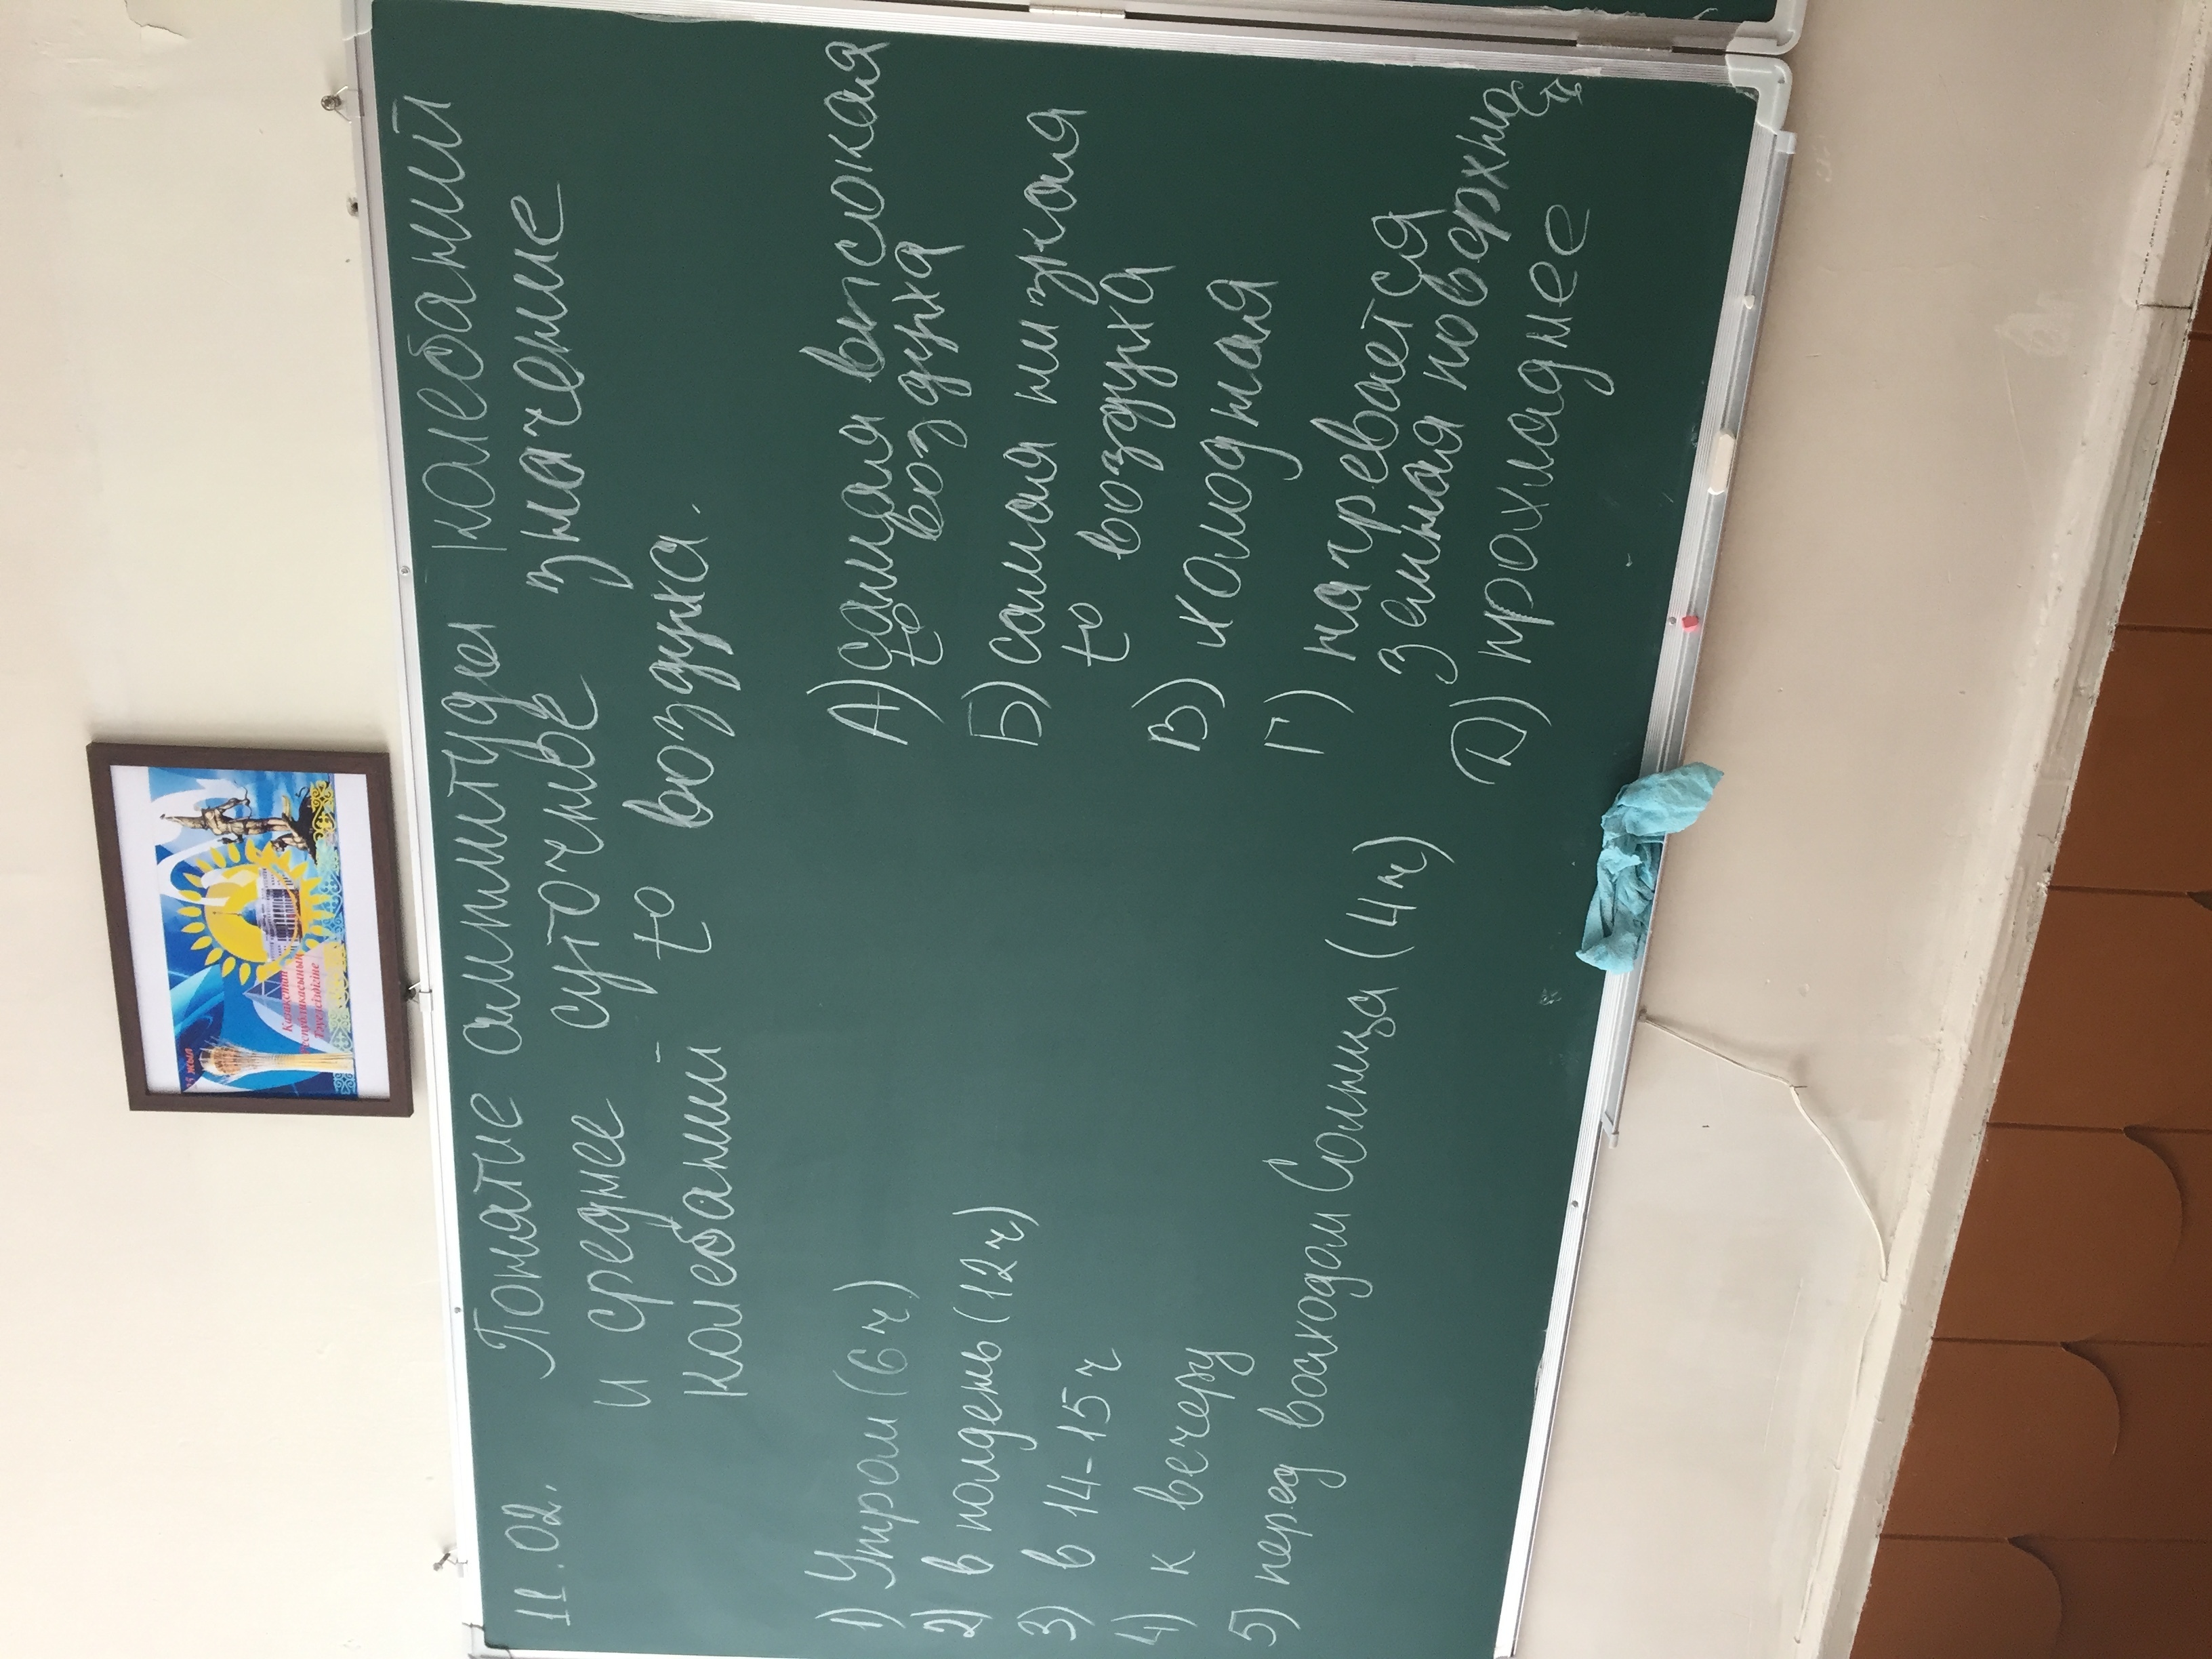 11.02. Понятие амплитуды калебаний
и среднее суточные значение
калебаний t° воздуха.
1) Утром (6 ч)
2) в полдень (12 ч)
3) в 14-15 ч
4) к вечеру
5) перед восходом Солнца (4 ч)
А) самая высокая
t° воздуха
Б) самая низкая
t° воздуха
В) холодная
Г) нагревается
Земная поверхность
Д) прохладнее
жыл
Қазақстан
Республикасының
Тәуелсіздігіне